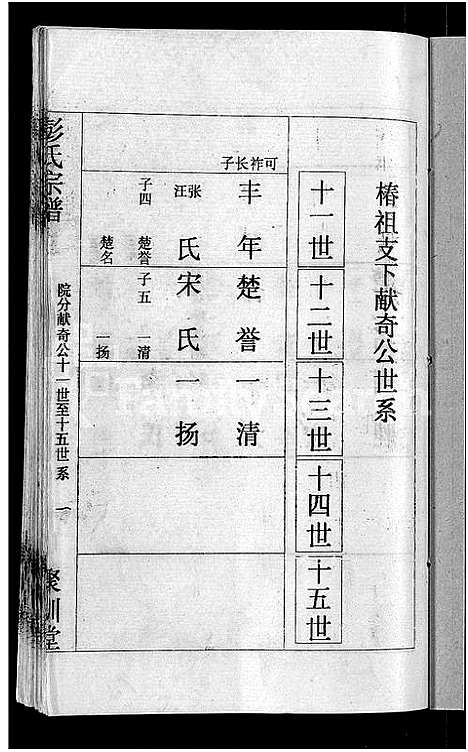 椿祖支下献奇公世系
十一世
十二世
十三世
十四世
十五世
可祚长子
丰年
张汪氏
子四
楚誉
楚名
楚誉
宋氏
子五
一清
一扬
一清
一扬
彭氏宗谱
院分献奇公十一世至十五世系
一
聚训堂